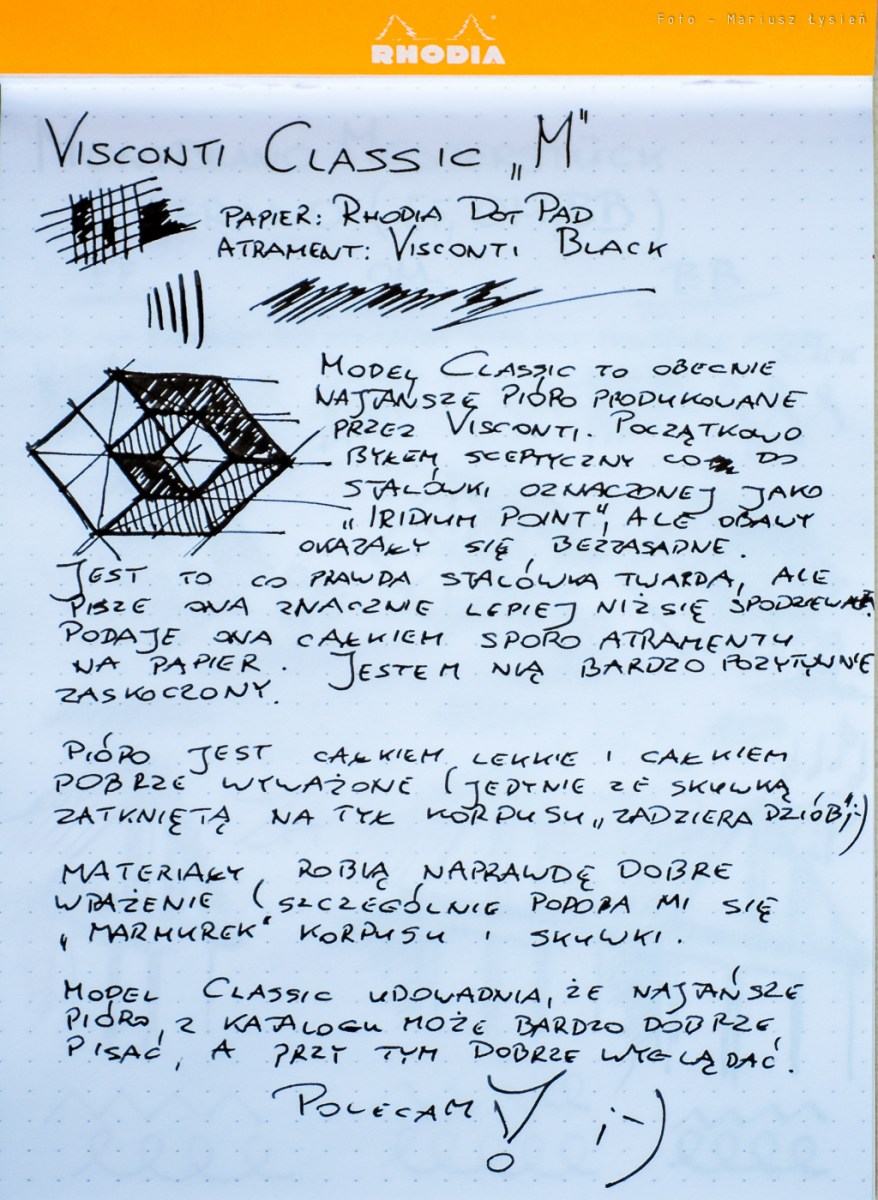 Foto - Mariusz Łysień
RHODIA
VISCONTI CLASSIC „M"
PAPIER: RHODIA DOT PAD
ATRAMENT: VISCONTI BLACK
MODEL CLASSIC TO OBECNIE
NAJTAŃSZE PIÓRO PRODUKOWANE
PRZEZ VISCONTI. POCZĄTKOWO
BYŁEM SCEPTYCZNY CO DO
STALÓWKI OZNACZONEJ JAKO
„IRIDIUM POINT", ALE OBAWY
OKAZAŁY SIĘ BEZZASADNE.
JEST TO CO PRAWDA STALÓWKA TWARDA, ALE
PISZE ONA ZNACZNIE LEPIEJ NIŻ SIĘ SPODZIEWAŁEM.
PODAJE ONA CAŁKIEM SPORO ATRAMENTU
NA PAPIER. JESTEM NIĄ BARDZO POZYTYWNIE
ZASKOCZONY.
PIÓRO JEST CAŁKIEM LEKKIE I CAŁKIEM
DOBRZE WYWAŻONE (JEDYNIE ZE SKUWKĄ
ZATKNIĘTĄ NA TYŁ KORPUSU „ZADZIERA DZIÓB" ;-)
MATERIAŁY ROBIĄ NAPRAWDĘ DOBRE
WRAŻENIE (SZCZEGÓLNIE PODOBA MI SIĘ
„MARMUREK" KORPUSU I SKUWKI.
MODEL CLASSIC UDOWADNIA, ŻE NAJTAŃSZE
PIÓRO Z KATALOGU MOŻE BARDZO DOBRZE
PISAĆ, A PRZY TYM DOBRZE WYGLĄDAĆ.
POLECAM! ;-)